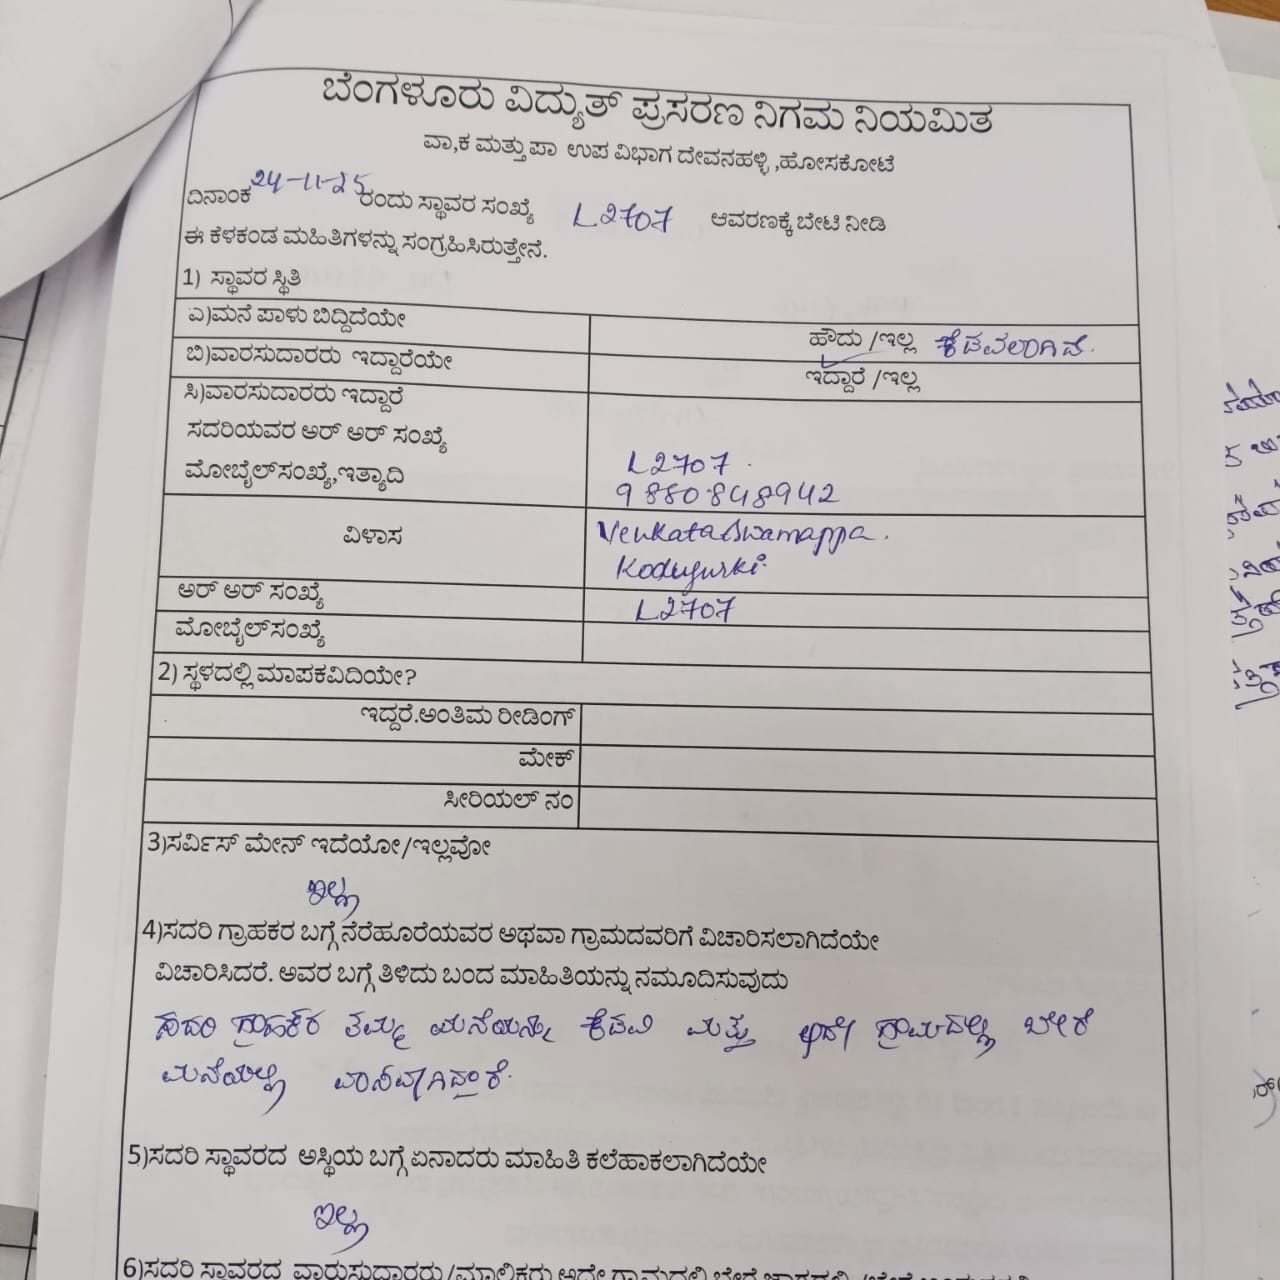 ಬೆಂಗಳೂರು ವಿದ್ಯುತ್ ಪ್ರಸರಣ ನಿಗಮ ನಿಯಮಿತ
ವಾ,ಕ ಮತ್ತು ಪಾ ಉಪ ವಿಭಾಗ ದೇವನಹಳ್ಳಿ ,ಹೋಸಕೋಟೆ
ದಿನಾಂಕ 24-11-25 ರಂದು ಸ್ಥಾವರ ಸಂಖ್ಯೆ L2707 ಆವರಣಕ್ಕೆ ಬೇಟಿ ನೀಡಿ
ಈ ಕೆಳಕಂಡ ಮಹಿತಿಗಳನ್ನು ಸಂಗ್ರಹಿಸಿರುತ್ತೇನೆ.
1) ಸ್ಥಾವರ ಸ್ಥಿತಿ
ಎ)ಮನೆ ಪಾಳು ಬಿದ್ದಿದೆಯೇ ಹೌದು /ಇಲ್ಲ ಕೆಡವಲಾಗಿದೆ.
ಬಿ)ವಾರಸುದಾರರು ಇದ್ದಾರೆಯೇ ಇದ್ದಾರೆ /ಇಲ್ಲ
ಸಿ)ವಾರಸುದಾರರು ಇದ್ದಾರೆ
ಸದರಿಯವರ ಅರ್ ಅರ್ ಸಂಖ್ಯೆ L2707.
ಮೋಬೈಲ್‌ಸಂಖ್ಯೆ,ಇತ್ಯಾದಿ 9880848942
ವಿಳಾಸ Venkataswamappa.
Kodugurki.
ಅರ್ ಅರ್ ಸಂಖ್ಯೆ L2707
ಮೋಬೈಲ್‌ಸಂಖ್ಯೆ
2) ಸ್ಥಳದಲ್ಲಿ ಮಾಪಕವಿದಿಯೇ?
ಇದ್ದರೆ.ಅಂತಿಮ ರೀಡಿಂಗ್
ಮೇಕ್
ಸೀರಿಯಲ್ ನಂ
3)ಸರ್ವಿಸ್ ಮೇನ್ ಇದೆಯೋ/ಇಲ್ಲವೋ
ಇಲ್ಲ
4)ಸದರಿ ಗ್ರಾಹಕರ ಬಗ್ಗೆ ನೆರೆಹೂರೆಯವರ ಅಥವಾ ಗ್ರಾಮದವರಿಗೆ ವಿಚಾರಿಸಲಾಗಿದೆಯೇ
ವಿಚಾರಿಸಿದರೆ. ಅವರ ಬಗ್ಗೆ ತಿಳಿದು ಬಂದ ಮಾಹಿತಿಯನ್ನು ನಮೂದಿಸುವುದು
ಸದರಿ ಗ್ರಾಹಕರ ತಮ್ಮ ಮನೆಯನ್ನು ಕೆಡವಿ ಮತ್ತು ಅದೇ ಗ್ರಾಮದಲ್ಲಿ ಬೇರೆ
ಮನೆಯಲ್ಲಿ ವಾಸವಾಗಿದ್ದಾರೆ.
5)ಸದರಿ ಸ್ಥಾವರದ ಅಸ್ಥಿಯ ಬಗ್ಗೆ ಏನಾದರು ಮಾಹಿತಿ ಕಲೆಹಾಕಲಾಗಿದೆಯೇ
ಇಲ್ಲ
6)ಸದರಿ ಸ್ಥಾವರದ ವಾರುಸುದಾರರು/ಮಾಲಿಕರು ಅದೇ ಗ್ರಾಮದಲ್ಲಿ ಬೇರೆ